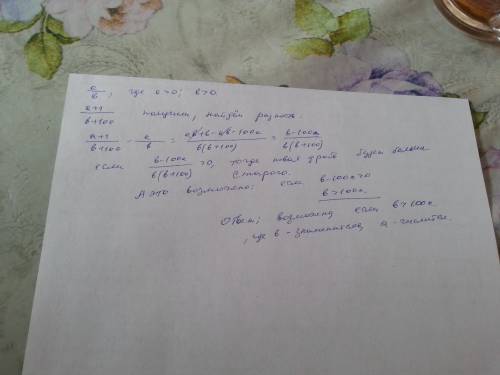 a/b, где a>0; b>0.
a+1/b+100 получим, найдём разность:
a+1/b+100 - a/b = ab+b-ab-100a/b(b+100) = b-100a/b(b+100)
если b-100a/b(b+100) >0, тогда новая дробь будет больше
старого.
А это возможено: если b-100a>0
b>100a
Ответ; возможно если b>100a
, где b - знаменатель a - числитель.